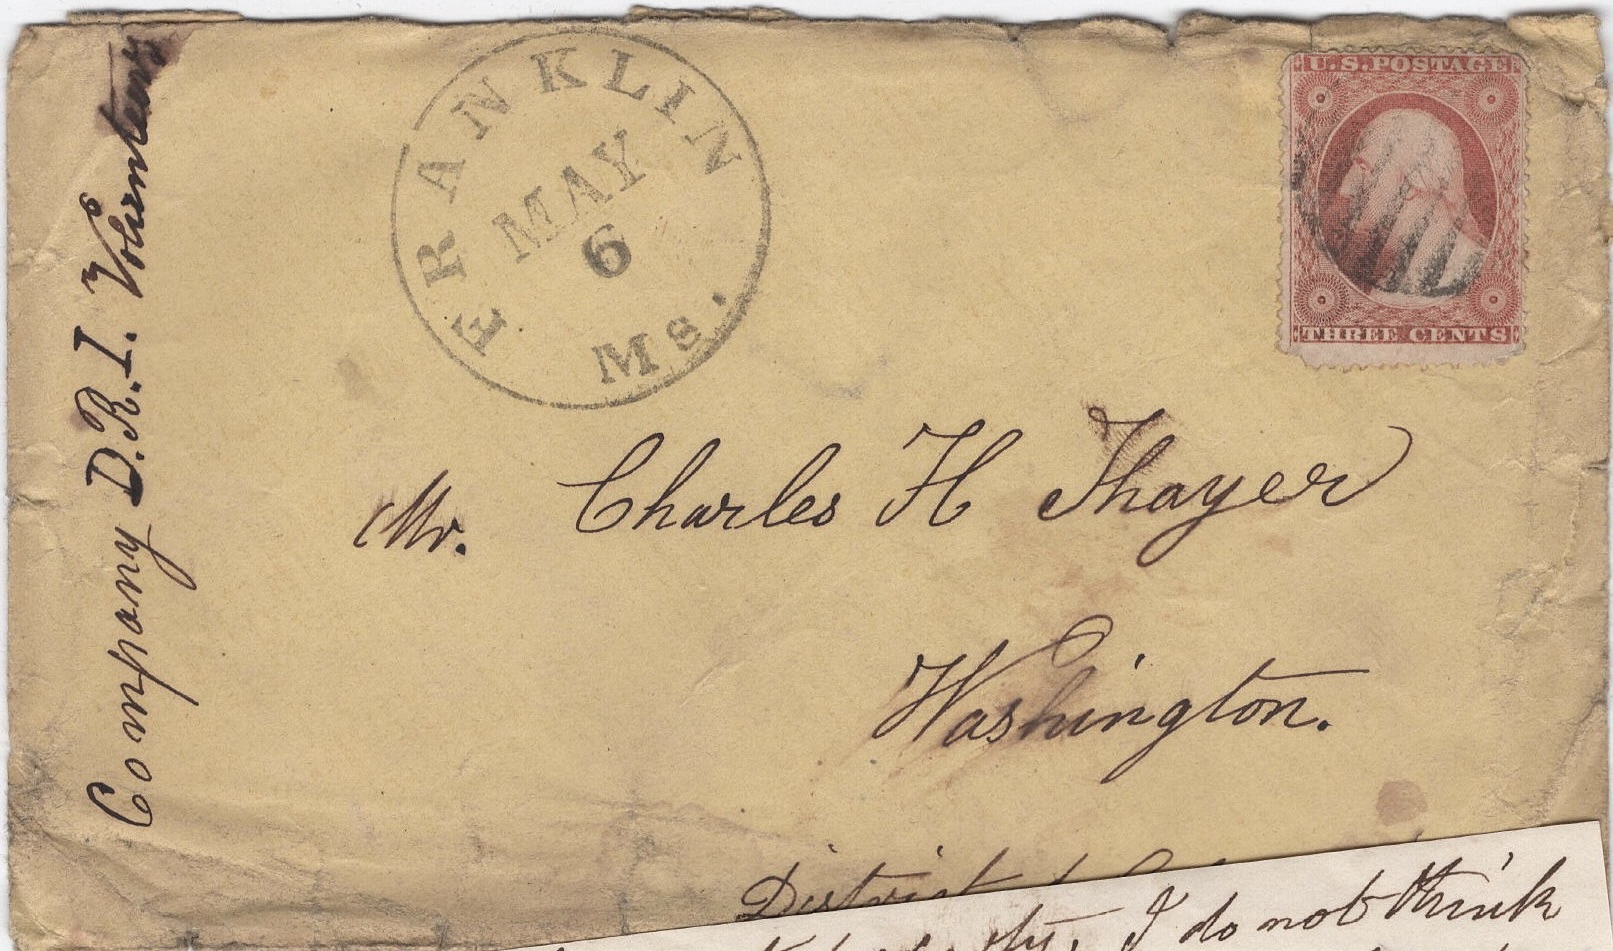 FRANKLIN
MAY
6
Ms.
U.S. POSTAGE
THREE CENTS
Company D. R. I. Volunteers
Mr. Charles H Thayer
Washington.
District
I do not think